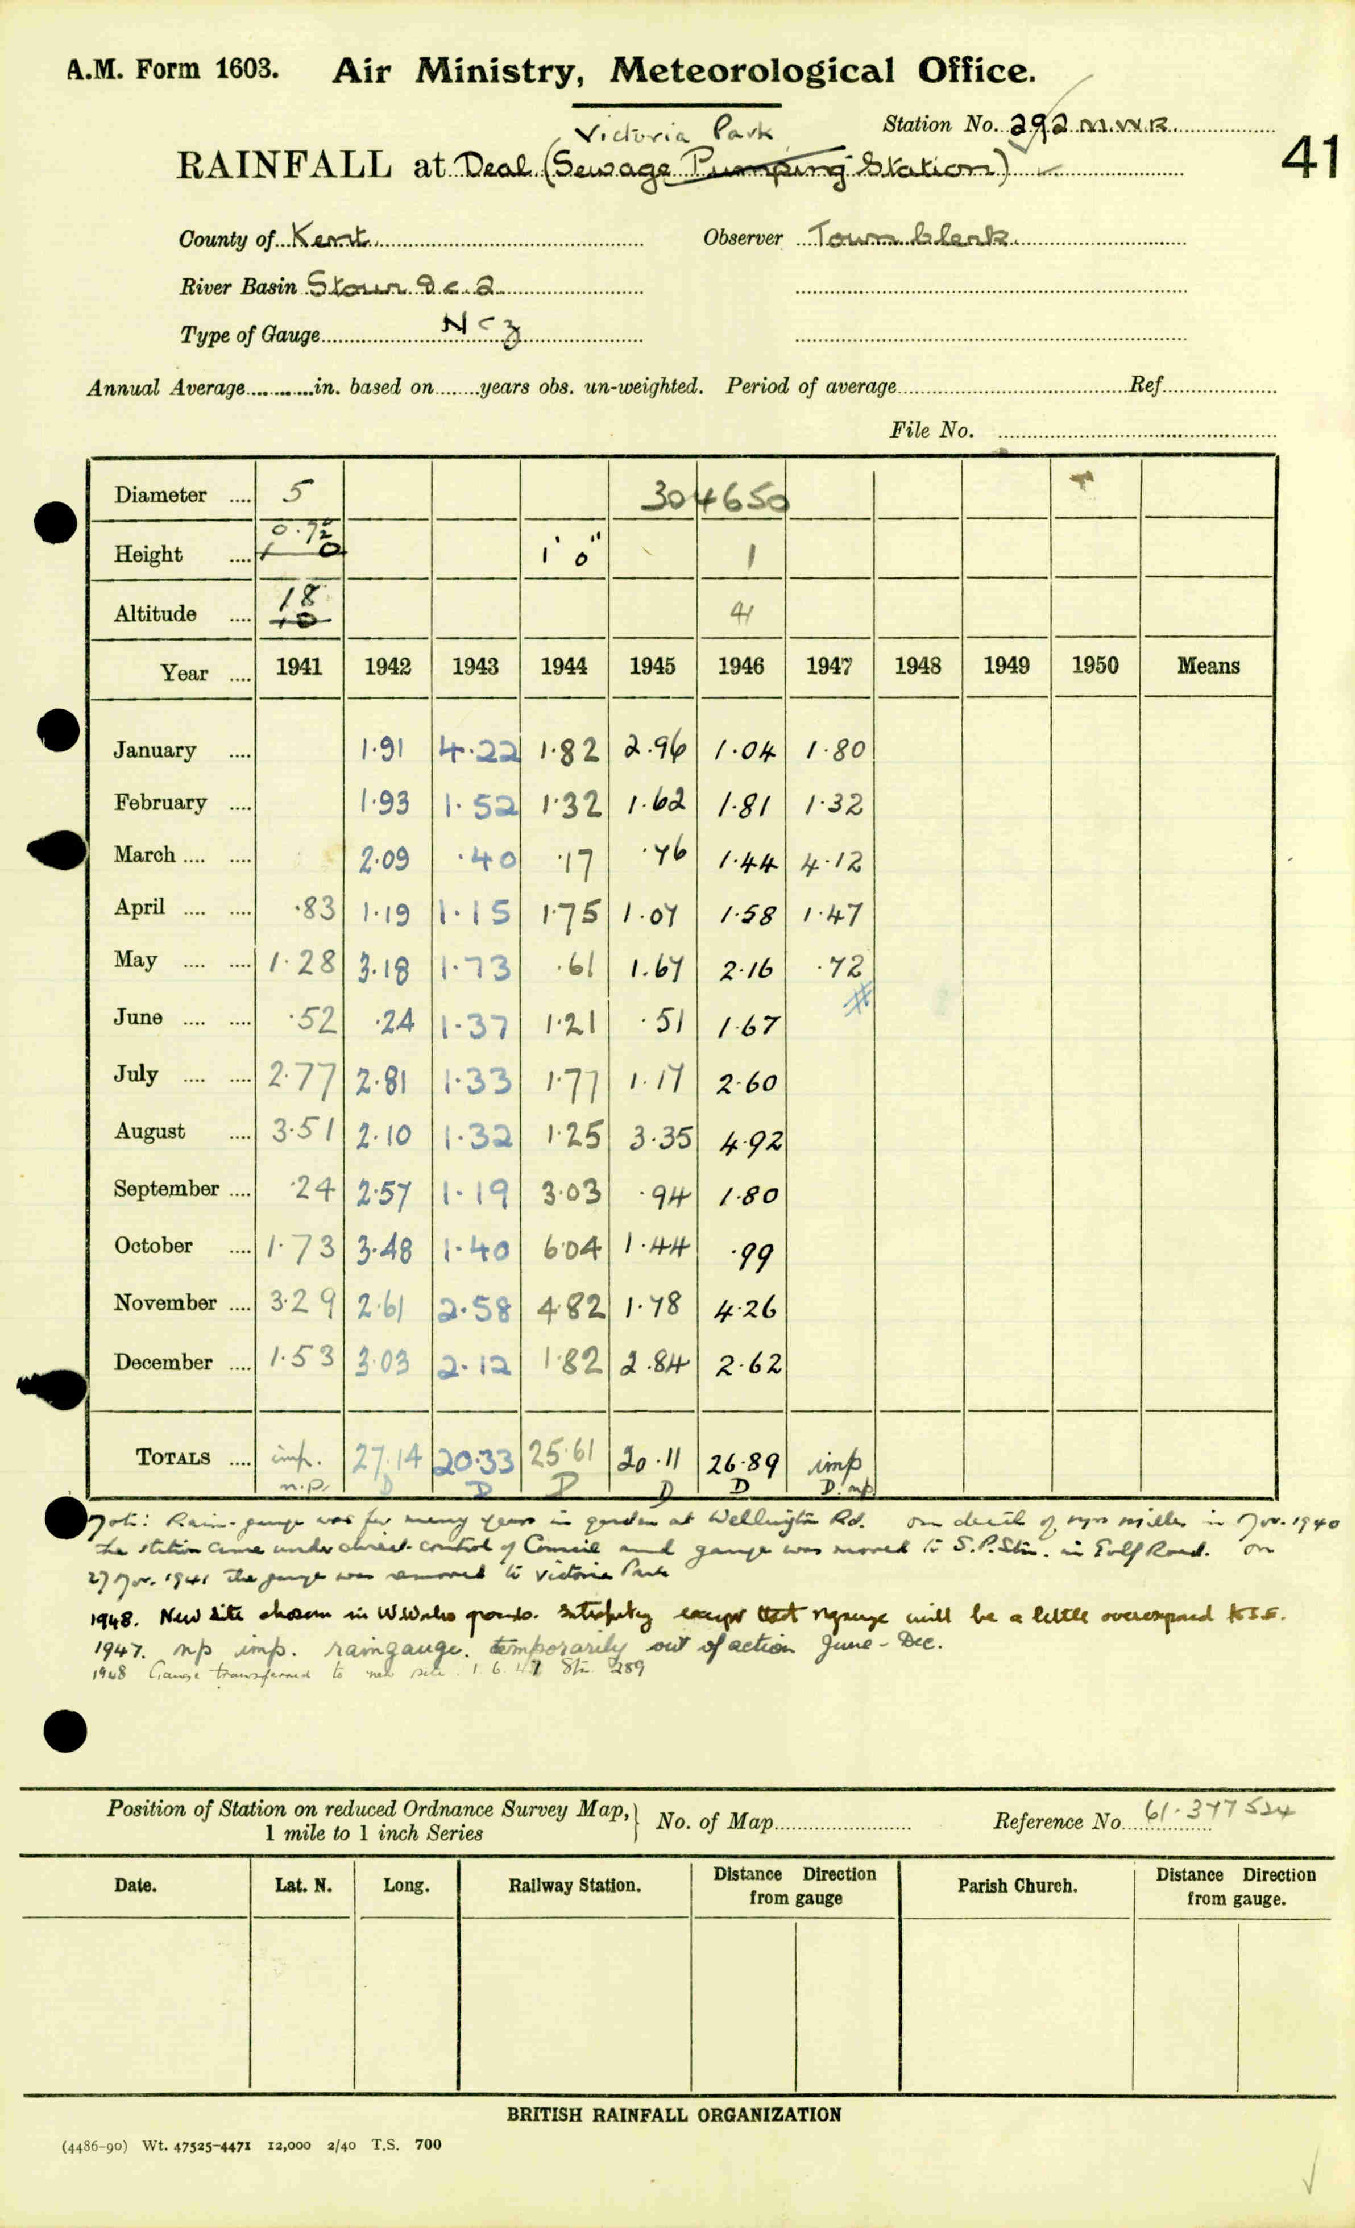 A.M. Form 1603. Air Ministry, Meteorological Office.
Victoria Park
Station No. 292 M.W.R.
41
RAINFALL at Deal (Sewage Pumping Station)
County of Kent Observer Town Clerk
River Basin Stour &c 2
Type of Gauge
Annual Average in. based on years obs. un-weighted. Period of average Ref.
File No.
Diameter 5 304650
Height 0.7 1 0 1' 0" 1
Altitude 18 10 4
Year 1941 1942 1943 1944 1945 1946 1947 1948 1949 1950 Means
January 1.91 4.22 1.82 2.96 1.04 1.80
February 1.93 1.52 1.32 1.62 1.81 1.32
March 2.09 .40 .17 .76 1.44 4.12
April .83 1.19 1.15 1.75 1.07 1.58 1.47
May 1.28 3.18 1.73 .61 1.67 2.16 .72
#
June .52 .24 1.37 1.21 .51 1.67
July 2.77 2.81 1.33 1.77 1.17 2.60
August 3.51 2.10 1.32 1.25 3.35 4.92
September .24 2.57 1.19 3.03 .94 1.80
October 1.73 3.48 1.40 6.04 1.44 .99
November 3.29 2.61 2.58 4.82 1.78 4.26
December 1.53 3.03 2.12 1.82 2.84 2.62
TOTALS imp. 27.14 20.33 25.61 20.11 26.89 imp
n.p. D D D D D D. np
Note: Rain-gauge was for many years in garden at Wellington Rd. On death of Miller in Nov. 1940
the station came under direct control of Council and gauge was moved to S.P. Stn. in Golf Road. On
27 Nov. 1941 the gauge was removed to Victoria Park
1948. New site chosen in W.Works grounds. Satisfactory except that gauge will be a little overexposed to S.E.
1947. np imp. raingauge temporarily out of action June - Dec.
1948 Gauge transferred to new site 1.6.47 Stn 289
Position of Station on reduced Ordnance Survey Map, No. of Map Reference No. 61.377524
1 mile to 1 inch Series
Date. Lat. N. Long. Railway Station. Distance Direction from gauge Parish Church. Distance Direction from gauge.
BRITISH RAINFALL ORGANIZATION
(4486-90) Wt. 47525-4471 12,000 2/40 T.S. 700